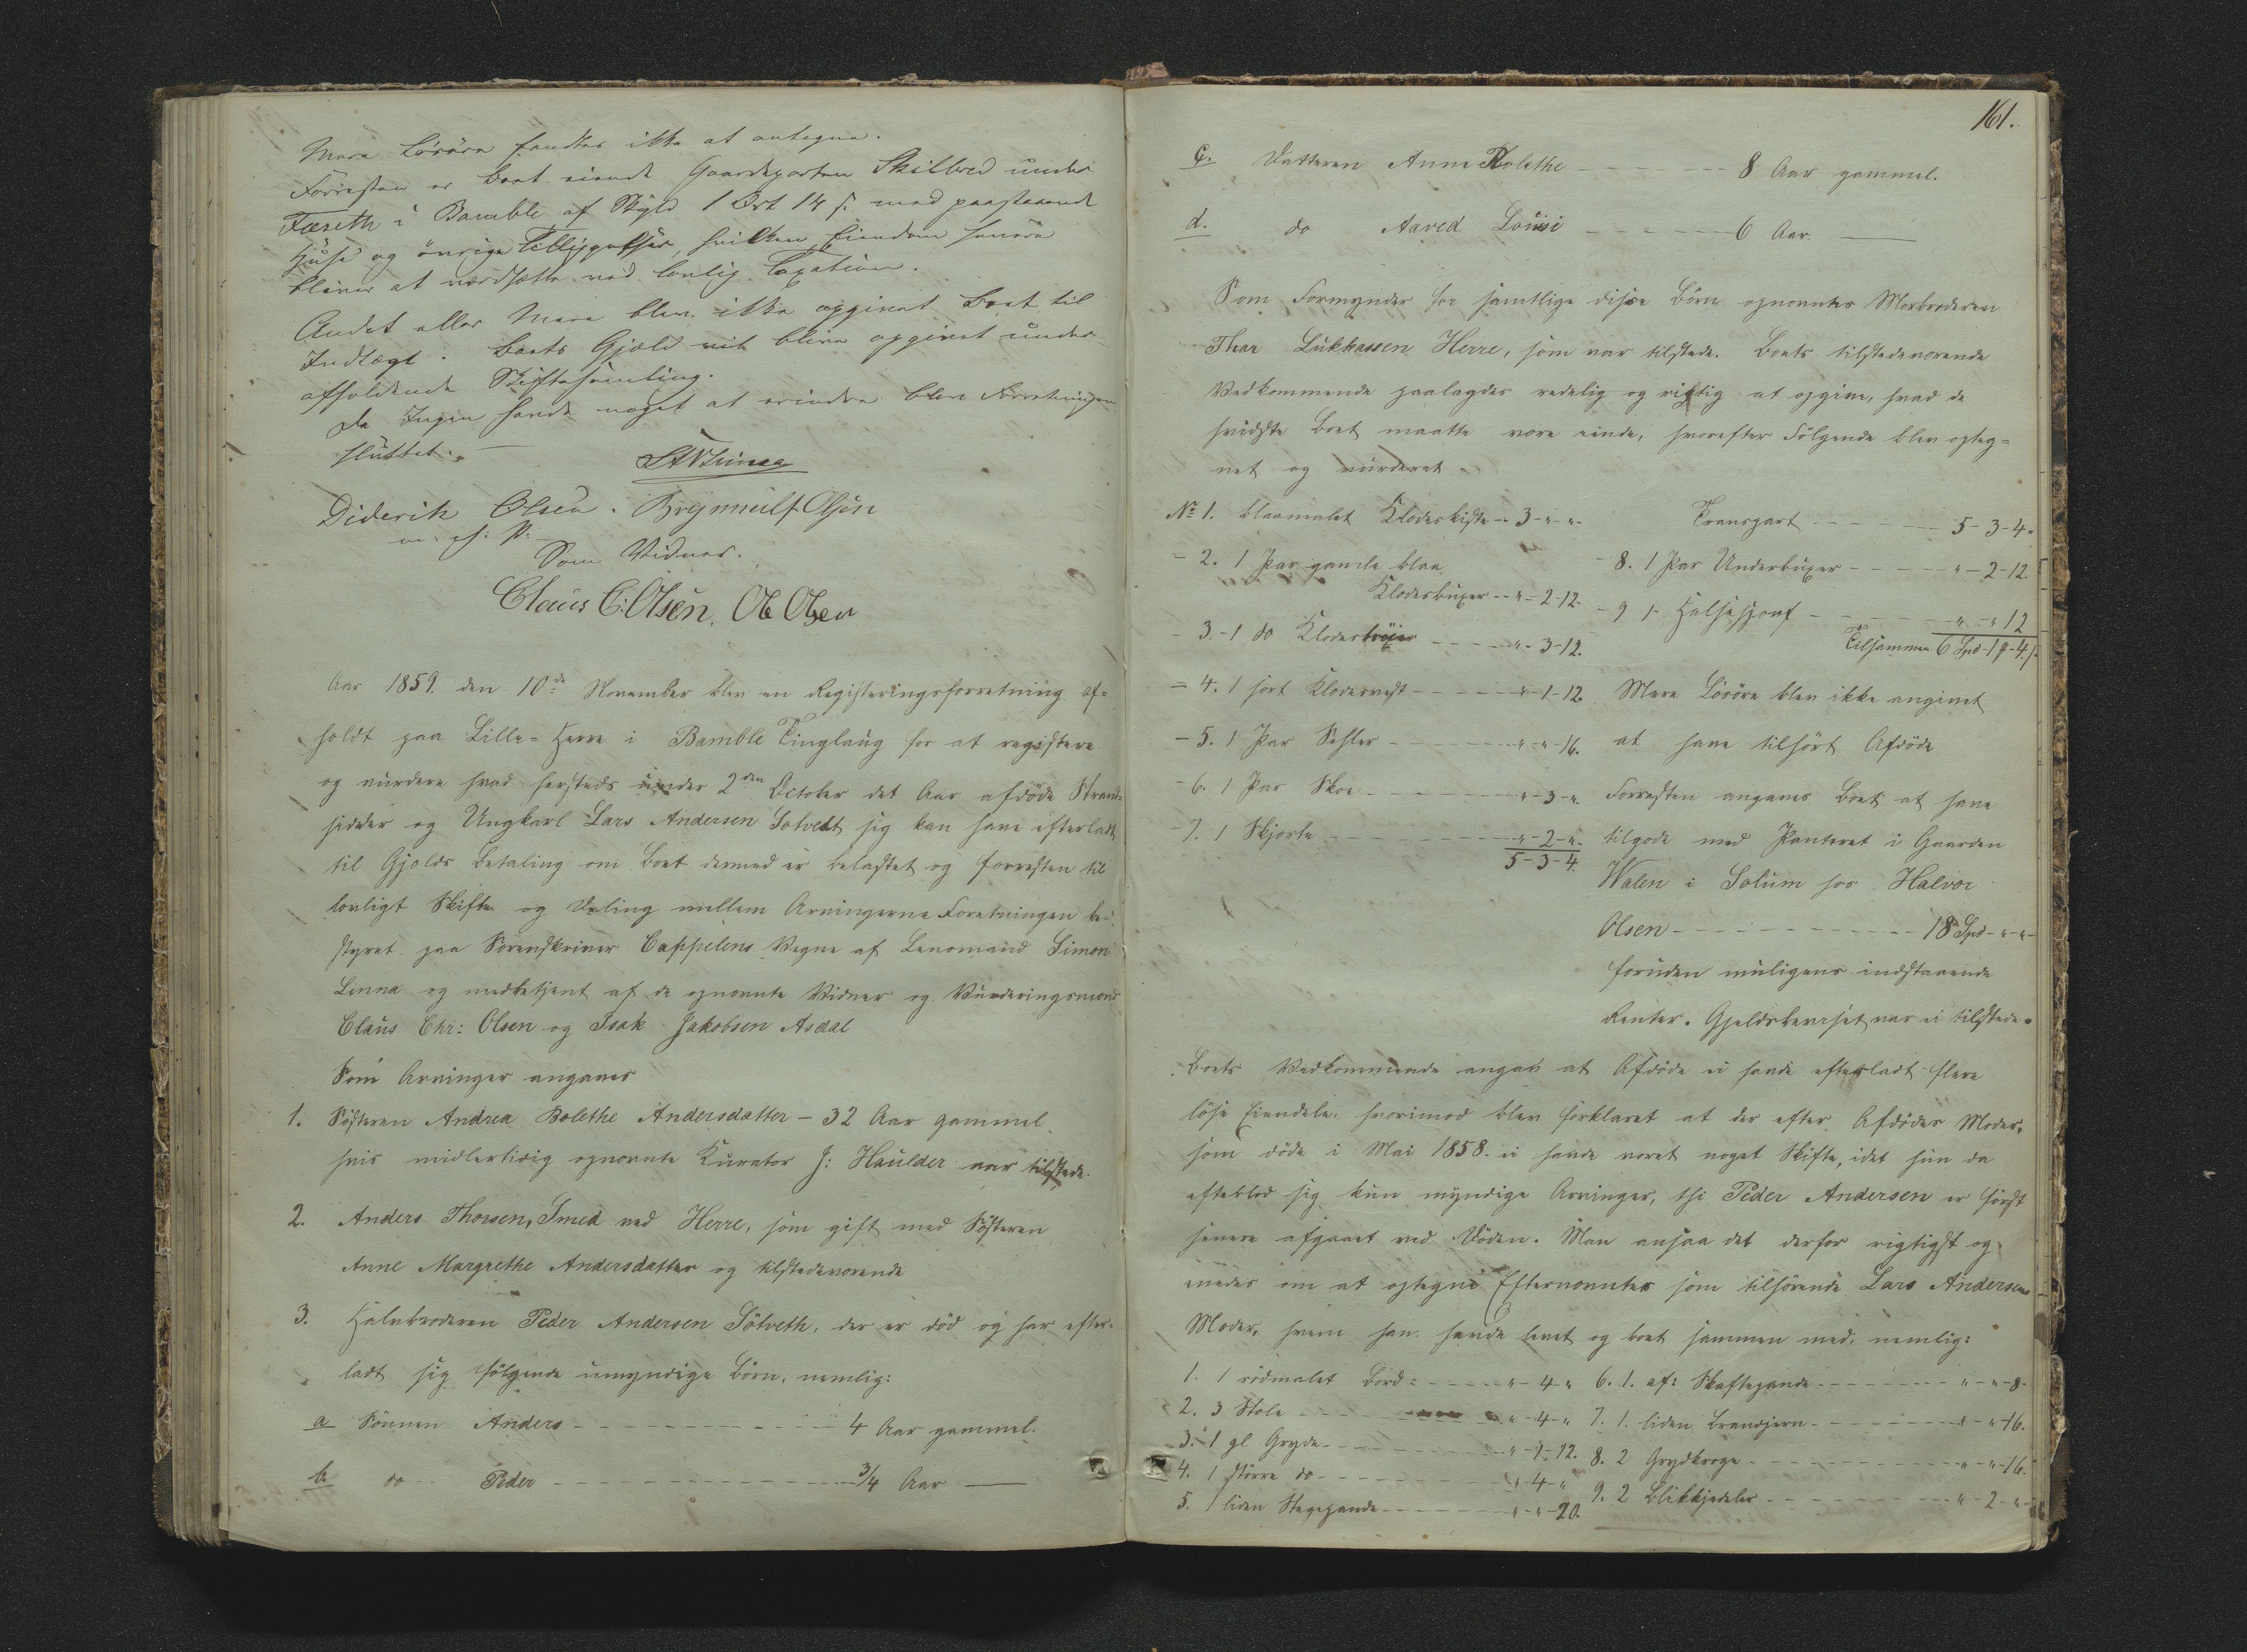 Mere Løsøre fandtes ikke at antegne.
Forresten er Boet eiende Gaardeparten Skilbred under
Fæseth i Bamble af Skyld 1 Ort 14 s. med paastaaende
Huse og øvrige Tilliggelser, hvilken Eiendom senere
bliver at værdsætte ved lovlig Taxation.
Andet eller Mere blev ikke opgivet Boet til
Indtægt. Boets Gjæld vil blive opgivet under
afholdende Skiftesamling.
Da Ingen havde noget at erindre blev Forretningen
sluttet.
Diderik Olsen. Brynnulf Olsen
m. p. P.
Som Vidner.
Claus C: Olsen. Ole Olsen
Aar 1859. den 10de November blev en Registeringsforretning af=
holdt paa Lille-Herre i Bamble Tinglaug for at registere
og vurdere hvad hersteds under 2den October det Aar afdøde Strand=
sidder og Ungkarl Lars Andersen Sotvedt sig kan have efterladt
til Gjelds Betaling om Boet dermed er belastet og forresten til
lovligt Skifte og Deling mellem Arvingerne Foretningen be=
styret paa Sorenskriver Cappelens Vegne af Lensmand Simon
Linna og medbetjent af de opnævnte Vidner og Vurderingsmænd
Claus Chr: Olsen og Isak Jakobsen Asdal
Som Arvinger angaves
1. Søsteren Andrea Bolethe Andersdatter – 32 Aar gammel
hvis midlertidig opnævnte Kurator J: Haulder var tilstede.
2. Anders Thorsen, Smed ved Herre, som gift med Søsteren
Anne Margrethe Andersdatter og tilstedeværende
3. Halvbroderen Peder Andersen Sötveth, der er død og har efter=
ladt sig følgende umyndige Børn, nemlig:
a Sønnen Anders - - - 4 Aar gammel.
b. do Peder - - - 3/4 Aar —
161.
c. Datteren Anne Bolethe - - - 8 Aar gammel.
d. do Aaved Louisi - - - 6 Aar. —
Som Formynder for samtlige disse Børn opnævntes Morbroderen
Thor Lukkassen Herre, som var tilstede. Boets tilstedeværende
Vedkommende paalagdes redelig og rigtig at opgive, hvad de
vidste Boet maatte være eiende, hvorefter Følgende blev opteg=
net og vurderet
No 1. blaamalet Klædeskiste - - 3 - " - "
- 2. 1 Par gamle blaa
Klædesbuxer - - " - 2 - 12.
- 3. - 1 do Klædestrøie - - - " - 3 - 12.
- 4. 1 sort Klædesvest - - - " - 1 - 12.
- 5. 1 Par Sehler - - - " - " - 16.
- 6. 1 Par Skoe - - - " - 3 - "
- 7. 1 Skjorte - - - " - 2 - "
5 - 3 - 4.
Transport - - - 5 - 3 - 4.
- 8. 1 Par Underbuxer - - - " - 2 - 12.
- 9 1 Halstørklæ - - - " - " 12
Tilsammen 6 Spd - 1 ort - 4 s.
Mere Løsøre blev ikke angivet
at have tilhørt Afdøde
Forresten angaves Boet at have
tilgode med Panteret i Gaarden
Walen i Solum hos Halvor
Olsen - - - 18 Spd - " - "
foruden muligens indstaaende
Renter. Gjeldsbeviset var ei tilstede.
Boets Vedkommende angav at Afdøde ei havde efterladt flere
løse Eiendele, hvorimod blev forklaret at der efter Afdødes Moder,
som døde i Mai 1858. ei havde været noget Skifte, idet hun da
efterlod sig kun myndige Arvinger, thi Peder Andersen er først
senere afgaaet ved Døden. Man ansaa det derfor rigtigst og
enedes om at optegne Efternævntes som tilhørende Lars Andersens
Moder, hvem han havde levet og boet sammen med, nemlig:
1. 1 rødmalet Bord: - - - " - 4 - "
2. 3 Stole - - - " - 4 - "
3. 1 gl Gryde - - - " - 1 - 12.
4. 1 større do - - - " - 4 - "
5. 1 liden Stegepande - - - " - " - 20.
6. 1. af: Skaftepande - - - " - " - 8
7. 1. liden Brandjern - - - " - " - 16.
8. 2 Grydkroge - - - " - " - 16.
9. 2 Blikkjedeler - - - " - 2 - "